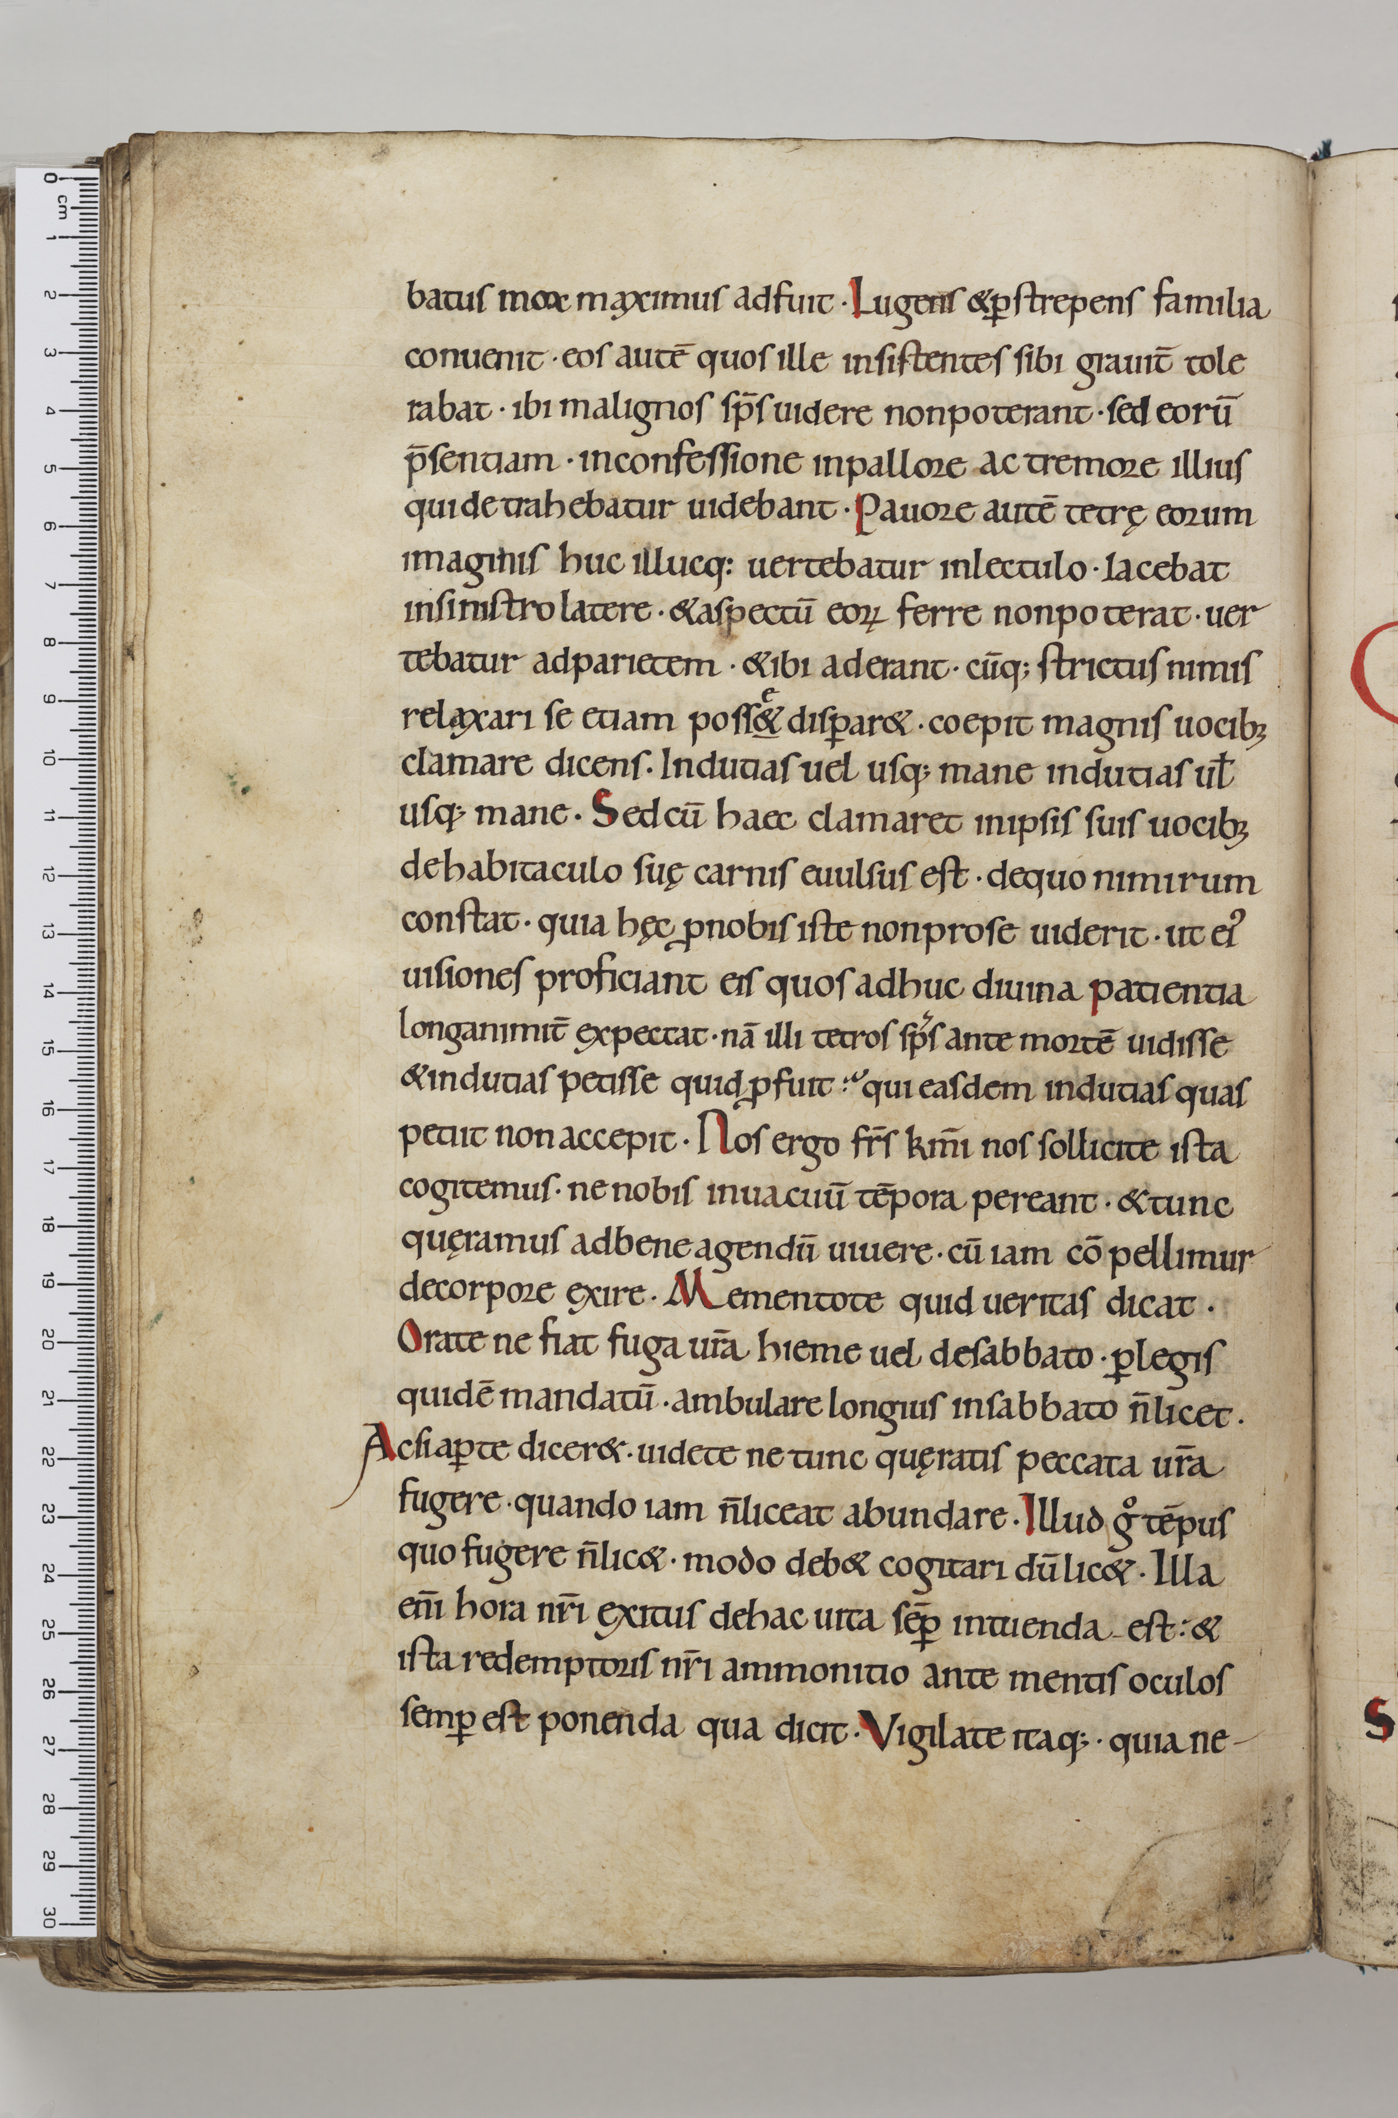 batus mox maximus adfuit · Lugens & p̄strepens familia
conuenit · eos autē quos ille insistentes sibi grauit̄ tole
rabat · ibi malignos sp̄s uidere non poterant · sed eorū
p̄sentiam · in confessione in pallore ac tremore illius
qui detrahebatur uidebant · Pauore autē tetrę eorum
imaginis huc illucq: uertebatur in lectulo · Iacebat
in sinistro latere · & aspectū eoꝝ ferre non poterat · uer
tebatur ad parietem · & ibi aderant · cūq; strictus nimis
relaxari se etiam poss&̣ e disꝑar& · coepit magnis uocibꝫ
clamare dicens · Indutias uel usq; mane indutias ul̄
usq; mane · Sed cū haec clamaret in ipsis suis uocibꝫ
de habitaculo suę carnis euulsus est · de quo nimirum
constat · quia hęc ꝓ nobis iste non pro se uiderit · ut ei᾽
uisiones proficiant eis quos adhuc diuina patientia
longanimit̄ expectat · nā illi tetros sp̄s ante mortē uidisse
& indutias petisse quid ꝓfuit · qui easdem indutias quas
petiit non accepit · Nos ergo fr̄s km̄i nos sollicite ista
cogitemus · ne nobis in uacuū tēpora pereant · & tunc
quęramus ad bene agendū uiuere · cū iam cōpellimur
de corpore exire · Mementote quid ueritas dicat ·
Orate ne fiat fuga ur̄a hieme uel de sabbato · ꝑ legis
quidē mandatū · ambulare longius in sabbato n̄ licet ·
Ac si aꝑte dicer& · uidete ne tunc quęratis peccata ur̄a
fugere · quando iam n̄ liceat abundare · Illud gͦ tēpus
quo fugere n̄ lic& · modo deb& cogitari dū lic& · Illa
eni̅ hora nr̄i exitus de hac uita sēꝑ intuenda est : &
ista redemptoris nr̄i ammonitio ante mentis oculos
semꝑ est ponenda qua dicit · Vigilate itaq; · quia ne-
S
0 cm
1
2
3
4
5
6
7
8
9
10
11
12
13
14
15
16
17
18
19
20
21
22
23
24
25
26
27
28
29
30